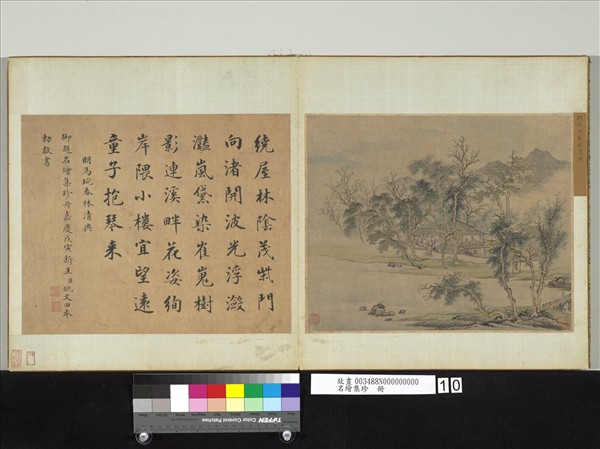 繞屋林陰茂柴門
向渚開波光浮瀲
灩嵐黛染崔嵬樹
影連溪畔花姿絢
岸隈小樓宜望遠
童子抱琴來
明馬琬春林清興
御題名繪集珍冊嘉慶戊寅新正臣姚文田奉
勅敬書
故畫 003488N000000000
名繪集珍 冊
10
TIFFEN Color Control Patches